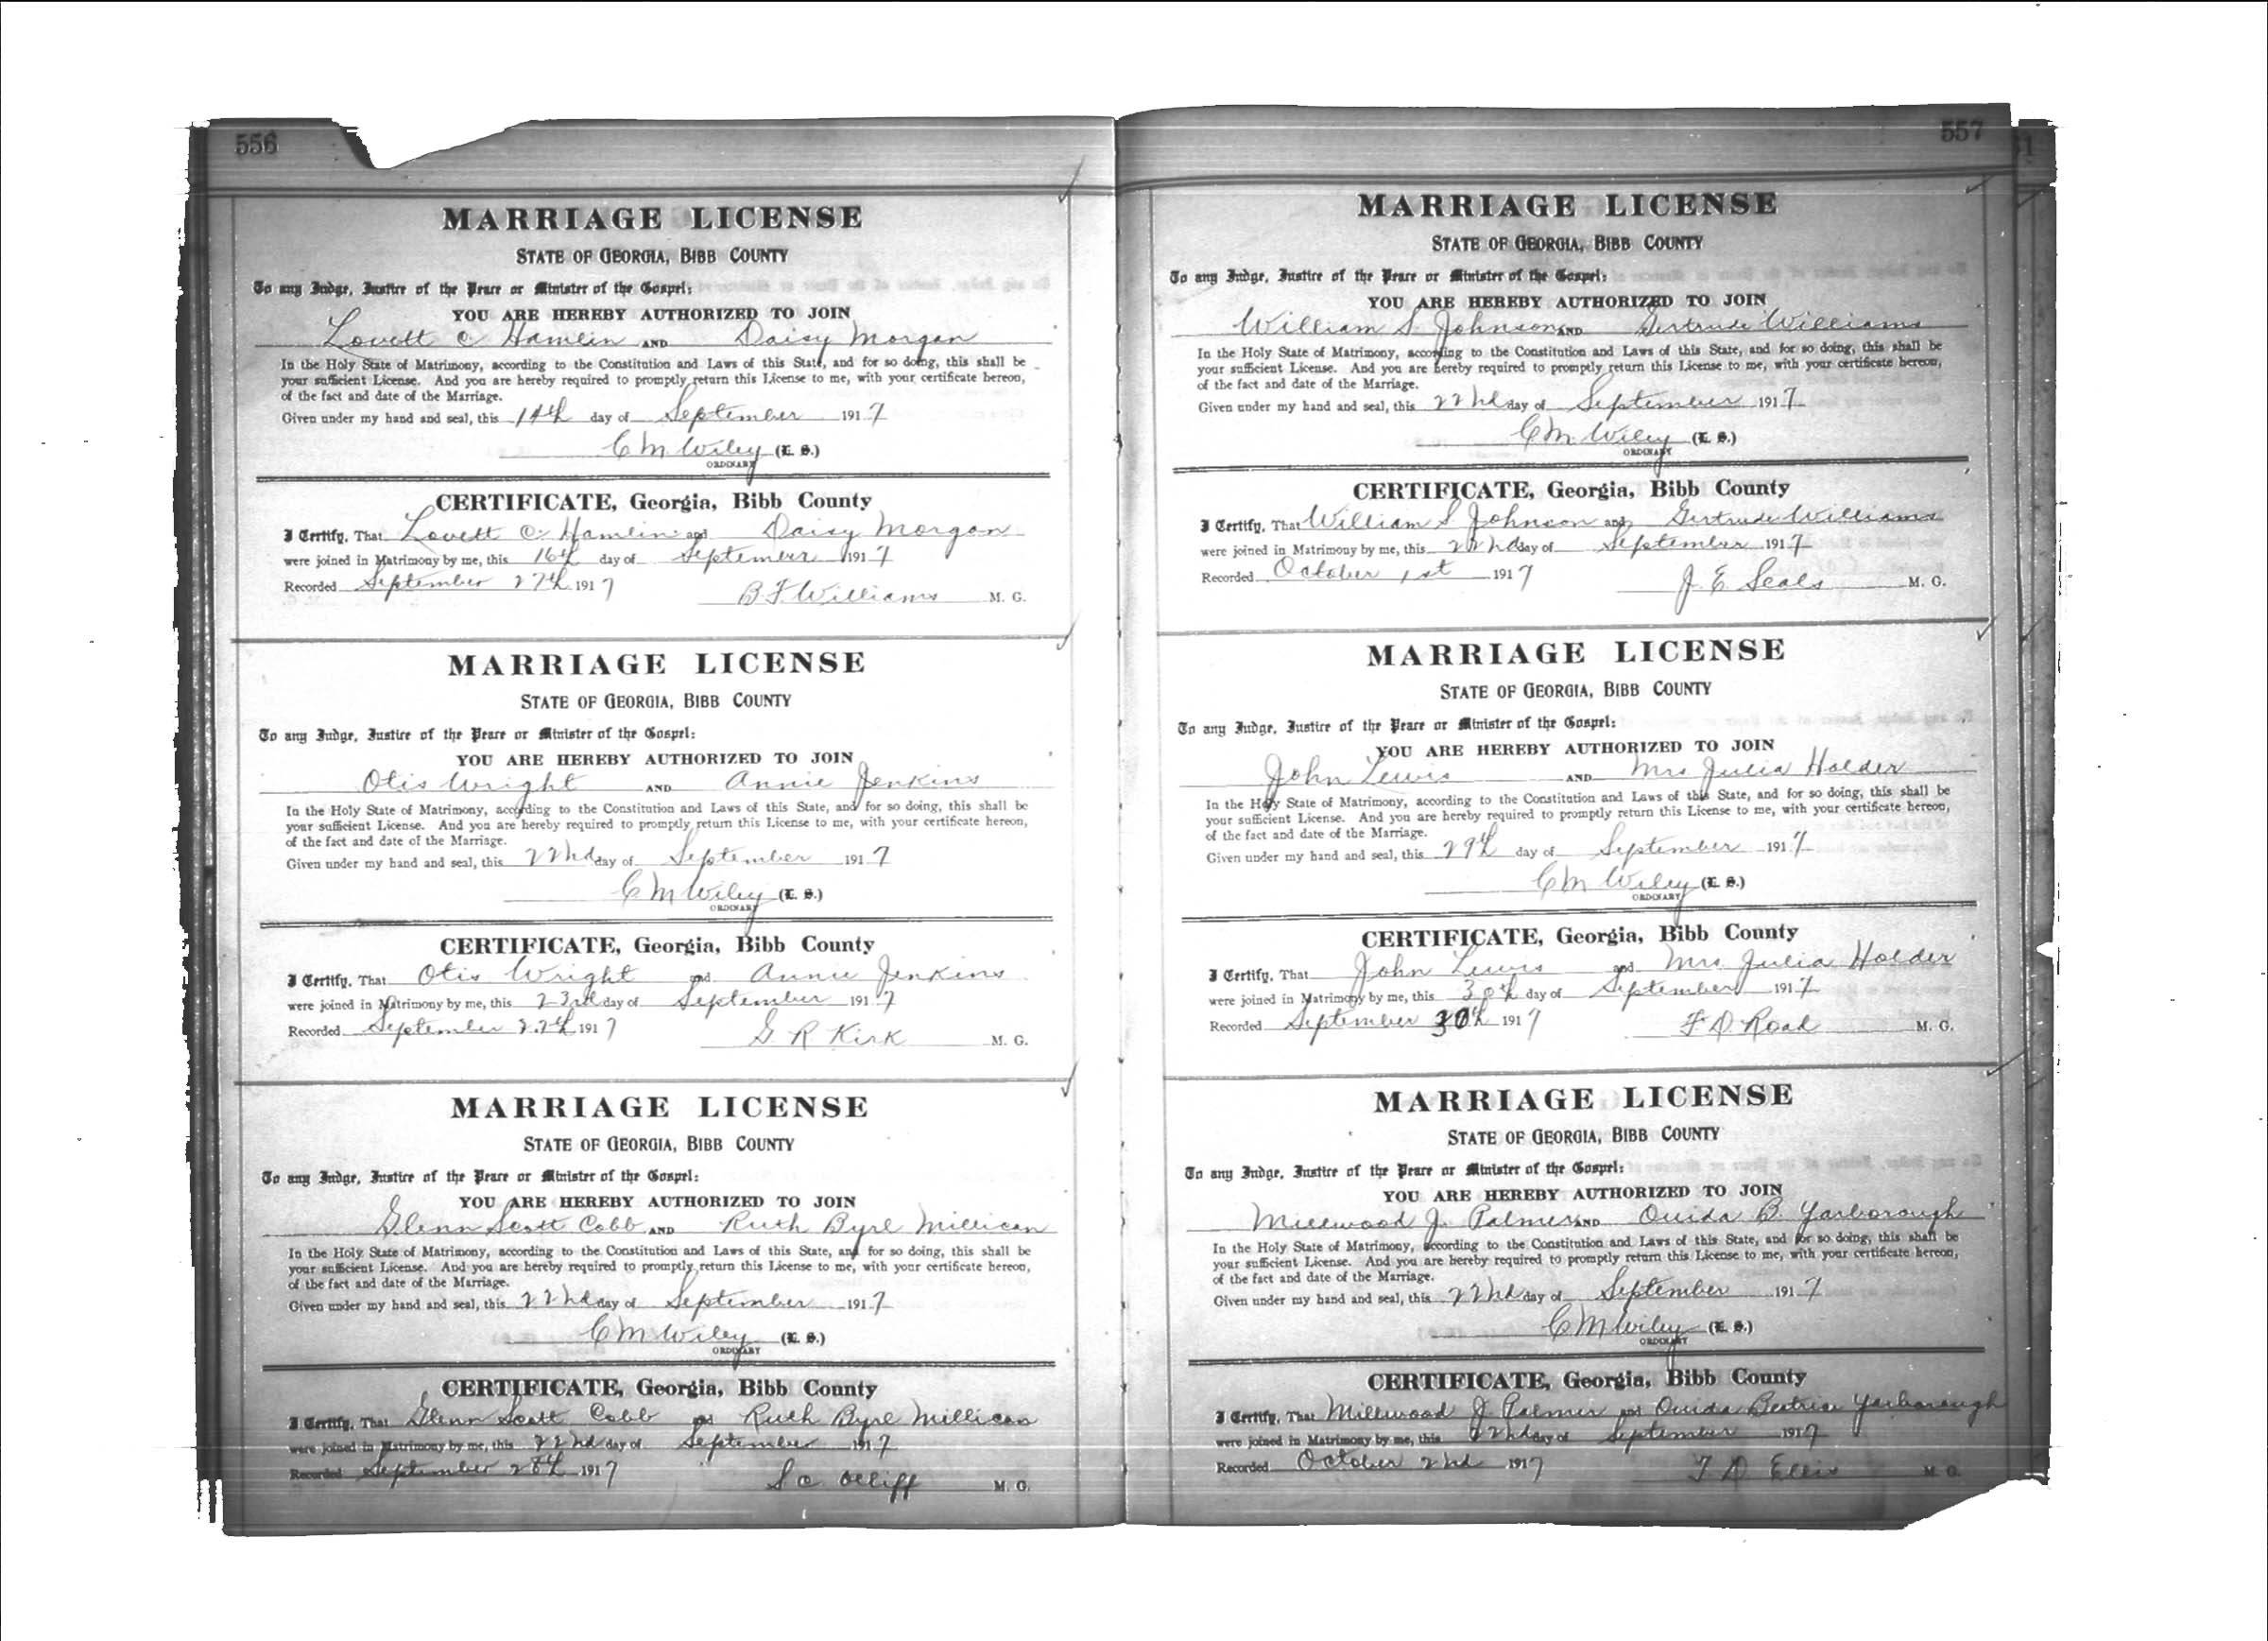 556
MARRIAGE LICENSE
STATE OF GEORGIA, BIBB COUNTY
To any Judge, Justice of the Peace or Minister of the Gospel:
YOU ARE HEREBY AUTHORIZED TO JOIN
Lovett C Hamlin AND Daisy Morgan
In the Holy State of Matrimony, according to the Constitution and Laws of this State, and for so doing, this shall be
your sufficient License. And you are hereby required to promptly return this License to me, with your certificate hereon,
of the fact and date of the Marriage.
Given under my hand and seal, this 14th day of September 1917
C M Wiley (L. S.)
ORDINARY
CERTIFICATE, Georgia, Bibb County
I Certify, That Lovett C. Hamlin and Daisy Morgan
were joined in Matrimony by me, this 16th day of September 1917
Recorded September 27th 1917
B F Williams M. G.
MARRIAGE LICENSE
STATE OF GEORGIA, BIBB COUNTY
To any Judge, Justice of the Peace or Minister of the Gospel:
YOU ARE HEREBY AUTHORIZED TO JOIN
Otis Wright AND Annie Jenkins
In the Holy State of Matrimony, according to the Constitution and Laws of this State, and for so doing, this shall be
your sufficient License. And you are hereby required to promptly return this License to me, with your certificate hereon,
of the fact and date of the Marriage.
Given under my hand and seal, this 22nd day of September 1917
C M Wiley (L. S.)
ORDINARY
CERTIFICATE, Georgia, Bibb County
I Certify, That Otis Wright and Annie Jenkins
were joined in Matrimony by me, this 23rd day of September 1917
Recorded September 27th 1917
G R Kirk M. G.
MARRIAGE LICENSE
STATE OF GEORGIA, BIBB COUNTY
To any Judge, Justice of the Peace or Minister of the Gospel:
YOU ARE HEREBY AUTHORIZED TO JOIN
Glenn Scott Cobb AND Ruth Byrl Millican
In the Holy State of Matrimony, according to the Constitution and Laws of this State, and for so doing, this shall be
your sufficient License. And you are hereby required to promptly return this License to me, with your certificate hereon,
of the fact and date of the Marriage.
Given under my hand and seal, this 22nd day of September 1917
C M Wiley (L. S.)
ORDINARY
CERTIFICATE, Georgia, Bibb County
I Certify, That Glenn Scott Cobb and Ruth Byrl Millican
were joined in Matrimony by me, this 22nd day of September 1917
Recorded September 28th 1917
S C Olliff M. G.
557
MARRIAGE LICENSE
STATE OF GEORGIA, BIBB COUNTY
To any Judge, Justice of the Peace or Minister of the Gospel:
YOU ARE HEREBY AUTHORIZED TO JOIN
William S. Johnson AND Gertrude Williams
In the Holy State of Matrimony, according to the Constitution and Laws of this State, and for so doing, this shall be
your sufficient License. And you are hereby required to promptly return this License to me, with your certificate hereon,
of the fact and date of the Marriage.
Given under my hand and seal, this 22nd day of September 1917
C M Wiley (L. S.)
ORDINARY
CERTIFICATE, Georgia, Bibb County
I Certify, That William S Johnson and Gertrude Williams
were joined in Matrimony by me, this 22nd day of September 1917
Recorded October 1st 1917
J. E. Seals M. G.
MARRIAGE LICENSE
STATE OF GEORGIA, BIBB COUNTY
To any Judge, Justice of the Peace or Minister of the Gospel:
YOU ARE HEREBY AUTHORIZED TO JOIN
John Lewis AND Mrs Julia Holder
In the Holy State of Matrimony, according to the Constitution and Laws of this State, and for so doing, this shall be
your sufficient License. And you are hereby required to promptly return this License to me, with your certificate hereon,
of the fact and date of the Marriage.
Given under my hand and seal, this 29th day of September 1917
C M Wiley (L. S.)
ORDINARY
CERTIFICATE, Georgia, Bibb County
I Certify, That John Lewis and Mrs. Julia Holder
were joined in Matrimony by me, this 30th day of September 1917
Recorded September 30th 1917
F D Road M. G.
MARRIAGE LICENSE
STATE OF GEORGIA, BIBB COUNTY
To any Judge, Justice of the Peace or Minister of the Gospel:
YOU ARE HEREBY AUTHORIZED TO JOIN
Millwood J. Palmer AND Ouida B. Yarborough
In the Holy State of Matrimony, according to the Constitution and Laws of this State, and for so doing, this shall be
your sufficient License. And you are hereby required to promptly return this License to me, with your certificate hereon,
of the fact and date of the Marriage.
Given under my hand and seal, this 22nd day of September 1917
C M Wiley (L. S.)
ORDINARY
CERTIFICATE, Georgia, Bibb County
I Certify, That Millwood J. Palmer and Ouida Beatrice Yarborough
were joined in Matrimony by me, this 22nd day of September 1917
Recorded October 2nd 1917
T D Ellis M. G.